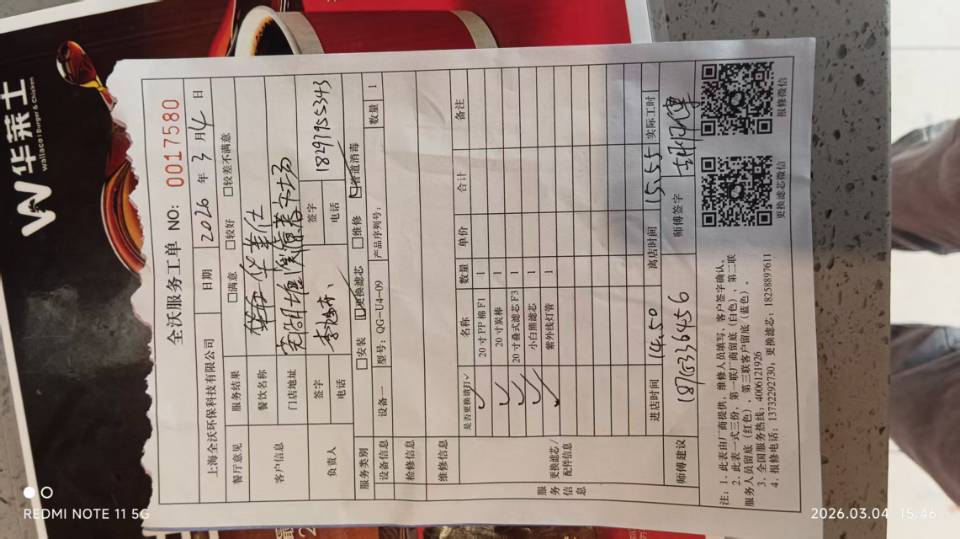 华莱士
wallace | Burger & Chicken
全沃服务工单 NO: 0017580
上海全沃环保科技有限公司 日期 2026 年 3 月 4 日
餐厅意见 服务结果 □满意 □较好 □较差不满意
客户信息 餐饮名称 华莱士
门店地址
负责人 签字 签字
电话 电话 18297955343
服务类别 □安装 ☑更换滤芯 □维修 ☑管道消毒
设备信息 设备一 型号: QG-U4-09 产品序列号: 数量 1
检修信息
维修信息
服务信息 更换滤芯/配件信息 是否更换请打✓ 名称 数量 单价 合计 备注
✓ 20 寸 PP 棉 F1 1
✓ 20 寸炭棒 1
✓ 20 寸叠式滤芯 F3 1
✓ 小白熊滤芯 1
紫外线灯管 1
进店时间 14.50 离店时间 15.55 实际工时
师傅建议 师傅签字
注: 1、此表由厂商提供、维修人员填写、客户签字确认。
2、此表一式三份, 第一联厂商留底 (白色) 、第二联
服务人员留底 (红色) 、第三联客户留底 (蓝色) 。
3、全国服务热线: 4006121926
4、报修电话: 13732292730, 更换滤芯: 18258897611
更换滤芯微信
报修微信
REDMI NOTE 11 5G
2026.03.04 15:46